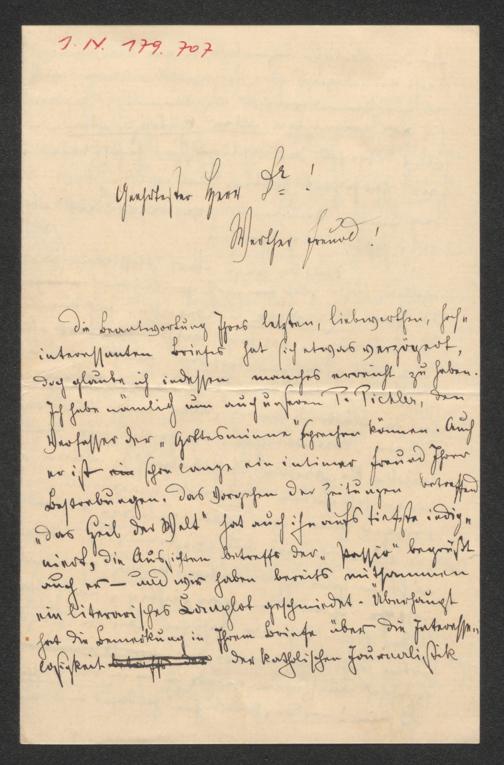 I. N. 179.707
Geehrtester Herr Dr!
Werther Freund!
Die Beantwortung Ihres letzten, liebwerthen, hoch-
interessanten Briefes hat sich etwas verzögert,
doch glaube ich indessen manches erreicht zu haben.
Ich habe nämlich nun auch unseren P. Pichler, den
Verfasser der „Gottesminne“ sprechen können. Auch
er ist schon lange ein intimer Freund Ihrer
Bestrebungen. Das Vorgehen der Zeitungen betreffend
„das Heil der Welt“ hat auch ihn aufs tiefste indig-
niert, die Aussichten betreffs der „Passio“ begrüßt
auch er – und wir haben bereits mitsammen
ein literarisches Komplot geschmiedet. Überhaupt
hat die Bemerkung in Ihrem Briefe über die Interesse-
losigkeit der katholischen Journalistik